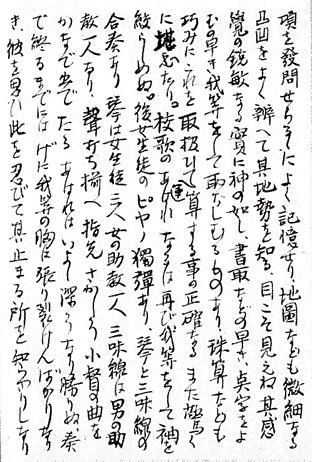 項を發問せらるゝによく記憶せり地圖なども微細なる
凸凹をよく辨へて其地勢を知る、目こそ見えね其感
覺の鋭敏なる實に神の如し、書取などの早き、点字をよ
むの早き我等をして耻ぢしむるものあり、珠算なども
巧みにこれを取扱ひて運算する事の正確なるまた極よく
に堪へたり。校歌のあはれなるは再び我等をして袖を
絞らしめぬ。後女生徒のピヤノ獨彈あり、琴と三味線の
合奏あり琴は女生徒三人女の助教一人三味線は男の助
教一人なり、聲打ち揃へ指先さかしう小督の曲を
かなで出でたるあはれはいよゝ深うなり勝りぬ、奏
で終るまでにはげに我等の胸は張り裂けんばかりなり
き、彼を思ひ此を忍びて其止まる所を知らざりしなり